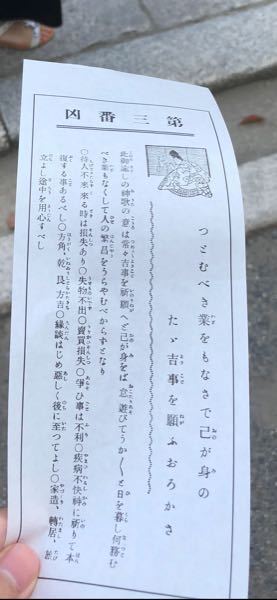 第三番凶
つとむべき業をもなさで己が身の
たゞ吉事を願ふおろかさ
此御諭しの神歌の意は常々吉事を祈願へど己が身をば怠遊びてうか〱と日を暮し何務む
べき業もなくして人の繁昌をうらやむべからずとなり
○待人不來來る時は損失あり○失物不出○賣買損失○爭ひ事は不利○疾病不快神に祈りて本
復する事あるべし○方角、乾、艮、方吉○緣談はじめ惡しく後に至つてよし○家造、轉居、旅
立よし途中を用心すべし